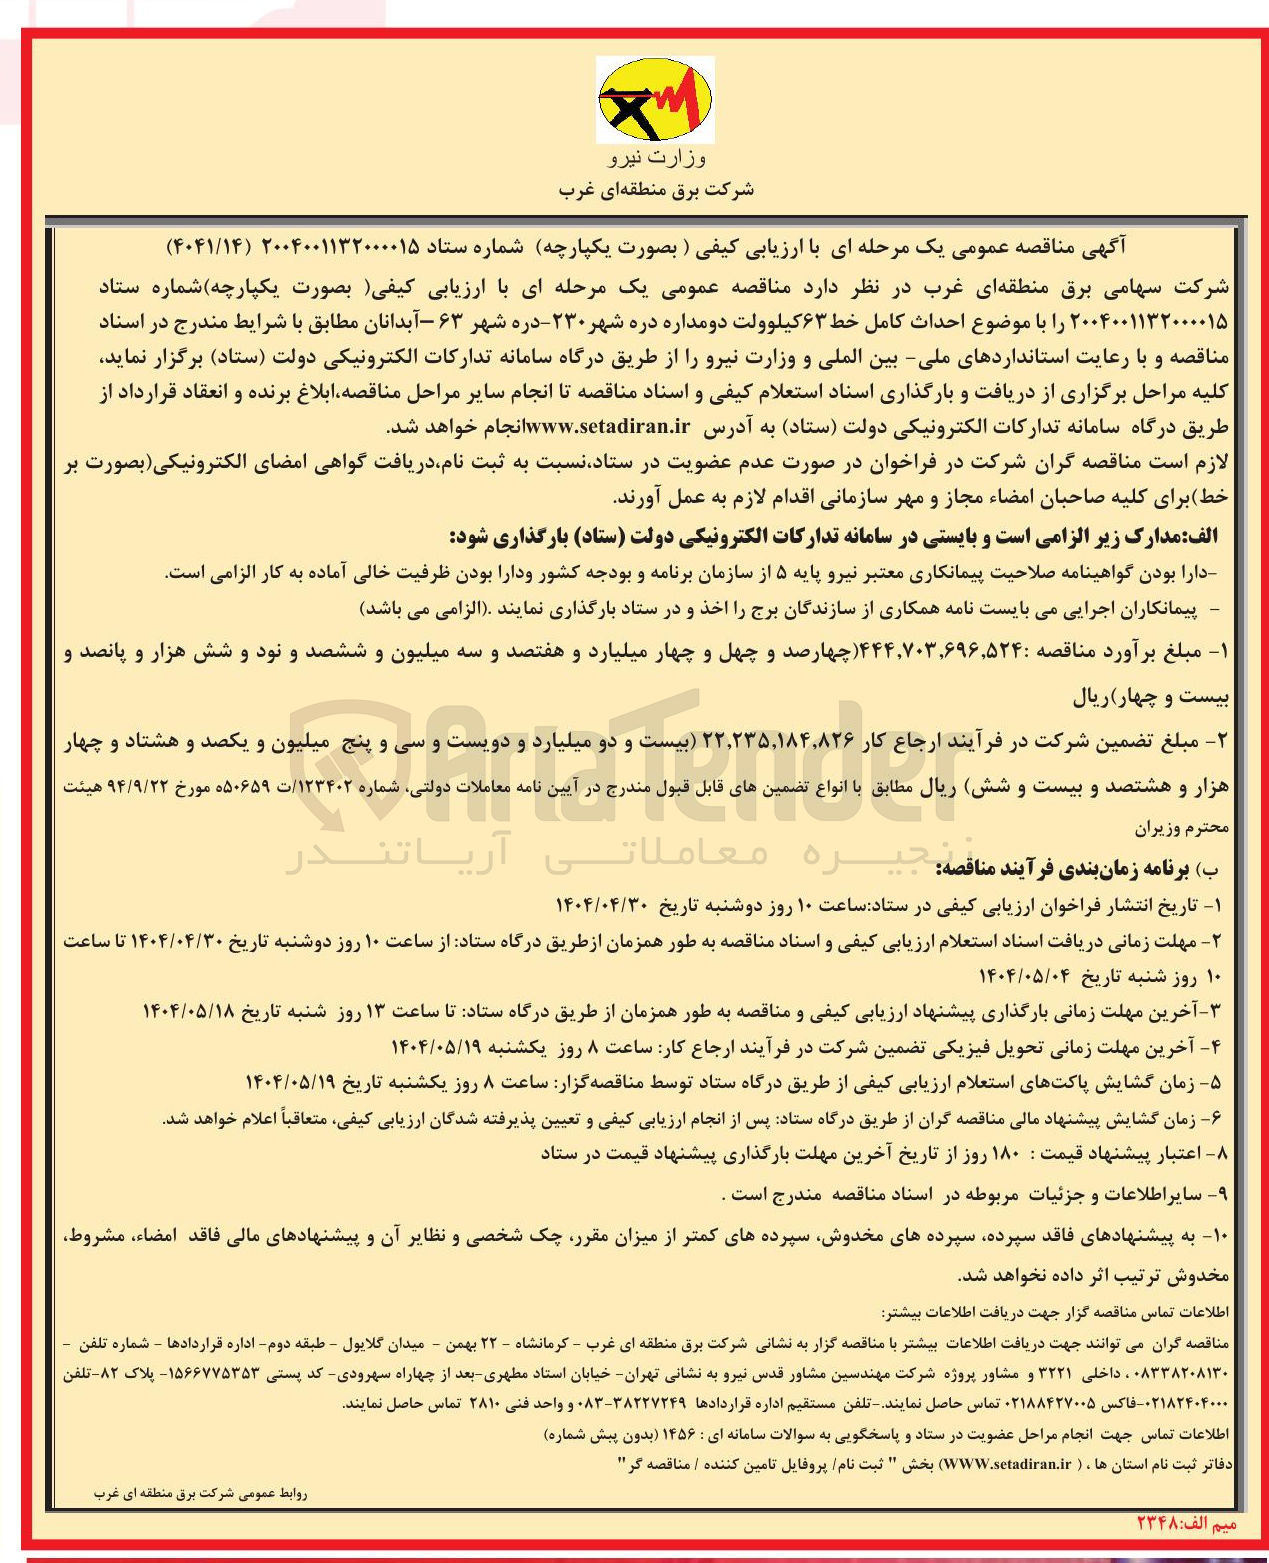 وزارت نیرو
شرکت برق منطقه‌ای غرب
آگهی مناقصه عمومی یک مرحله ای با ارزیابی کیفی ( بصورت یکپارچه) شماره ستاد ۲۰۰۴۰۰۱۱۳۲۰۰۰۰۱۵ (۴۰۴۱/۱۴)
شرکت سهامی برق منطقه‌ای غرب در نظر دارد مناقصه عمومی یک مرحله ای با ارزیابی کیفی( بصورت یکپارچه)شماره ستاد
۲۰۰۴۰۰۱۱۳۲۰۰۰۰۱۵ را با موضوع احداث کامل خط۶۳کیلوولت دومداره دره شهر۲۳۰-دره شهر ۶۳ –آبدانان مطابق با شرایط مندرج در اسناد
مناقصه و با رعایت استانداردهای ملی- بین المللی و وزارت نیرو را از طریق درگاه سامانه تدارکات الکترونیکی دولت (ستاد) برگزار نماید،
کلیه مراحل برگزاری از دریافت و بارگذاری اسناد استعلام کیفی و اسناد مناقصه تا انجام سایر مراحل مناقصه،ابلاغ برنده و انعقاد قرارداد از
طریق درگاه سامانه تدارکات الکترونیکی دولت (ستاد) به آدرس www.setadiran.irانجام خواهد شد.
لازم است مناقصه گران شرکت در فراخوان در صورت عدم عضویت در ستاد،نسبت به ثبت نام،دریافت گواهی امضای الکترونیکی(بصورت بر
خط)برای کلیه صاحبان امضاء مجاز و مهر سازمانی اقدام لازم به عمل آورند.
الف:مدارک زیر الزامی است و بایستی در سامانه تدارکات الکترونیکی دولت (ستاد) بارگذاری شود:
-دارا بودن گواهینامه صلاحیت پیمانکاری معتبر نیرو پایه ۵ از سازمان برنامه و بودجه کشور ودارا بودن ظرفیت خالی آماده به کار الزامی است.
- پیمانکاران اجرایی می بایست نامه همکاری از سازندگان برج را اخذ و در ستاد بارگذاری نمایند .(الزامی می باشد)
۱- مبلغ برآورد مناقصه :۴۴۴,۷۰۳,۶۹۶,۵۲۴(چهارصد و چهل و چهار میلیارد و هفتصد و سه میلیون و ششصد و نود و شش هزار و پانصد و
بیست و چهار)ریال
۲- مبلغ تضمین شرکت در فرآیند ارجاع کار ۲۲,۲۳۵,۱۸۴,۸۲۶ (بیست و دو میلیارد و دویست و سی و پنج میلیون و یکصد و هشتاد و چهار
هزار و هشتصد و بیست و شش) ریال مطابق با انواع تضمین های قابل قبول مندرج در آیین نامه معاملات دولتی، شماره ۱۲۳۴۰۲/ت ۵۰۶۵۹ه مورخ ۹۴/۹/۲۲ هیئت
محترم وزیران
AriaTender
زنجیره معاملاتی آریاتندر
ب) برنامه زمان‌بندی فرآیند مناقصه:
۱- تاریخ انتشار فراخوان ارزیابی کیفی در ستاد:ساعت ۱۰ روز دوشنبه تاریخ ۱۴۰۴/۰۴/۳۰
۲- مهلت زمانی دریافت اسناد استعلام ارزیابی کیفی و اسناد مناقصه به طور همزمان ازطریق درگاه ستاد: از ساعت ۱۰ روز دوشنبه تاریخ ۱۴۰۴/۰۴/۳۰ تا ساعت
۱۰ روز شنبه تاریخ ۱۴۰۴/۰۵/۰۴
۳-آخرین مهلت زمانی بارگذاری پیشنهاد ارزیابی کیفی و مناقصه به طور همزمان از طریق درگاه ستاد: تا ساعت ۱۳ روز شنبه تاریخ ۱۴۰۴/۰۵/۱۸
۴- آخرین مهلت زمانی تحویل فیزیکی تضمین شرکت در فرآیند ارجاع کار: ساعت ۸ روز یکشنبه ۱۴۰۴/۰۵/۱۹
۵- زمان گشایش پاکت‌های استعلام ارزیابی کیفی از طریق درگاه ستاد توسط مناقصه‌گزار: ساعت ۸ روز یکشنبه تاریخ ۱۴۰۴/۰۵/۱۹
۶- زمان گشایش پیشنهاد مالی مناقصه گران از طریق درگاه ستاد: پس از انجام ارزیابی کیفی و تعیین پذیرفته شدگان ارزیابی کیفی، متعاقباً اعلام خواهد شد.
۸- اعتبار پیشنهاد قیمت : ۱۸۰ روز از تاریخ آخرین مهلت بارگذاری پیشنهاد قیمت در ستاد
۹- سایراطلاعات و جزئیات مربوطه در اسناد مناقصه مندرج است .
۱۰- به پیشنهادهای فاقد سپرده، سپرده های مخدوش، سپرده های کمتر از میزان مقرر، چک شخصی و نظایر آن و پیشنهادهای مالی فاقد امضاء، مشروط،
مخدوش ترتیب اثر داده نخواهد شد.
اطلاعات تماس مناقصه گزار جهت دریافت اطلاعات بیشتر:
مناقصه گران می توانند جهت دریافت اطلاعات بیشتر با مناقصه گزار به نشانی شرکت برق منطقه ای غرب - کرمانشاه - ۲۲ بهمن - میدان گلایول - طبقه دوم- اداره قراردادها - شماره تلفن -
۰۸۳۳۸۲۰۸۱۳۰ ، داخلی ۳۲۲۱ و مشاور پروژه شرکت مهندسین مشاور قدس نیرو به نشانی تهران- خیابان استاد مطهری-بعد از چهاراه سهرودی- کد پستی ۱۵۶۶۷۷۵۳۵۳- پلاک ۸۲-تلفن
۰۲۱۸۲۴۰۴۰۰۰-فاکس ۰۲۱۸۸۴۲۷۰۰۵ تماس حاصل نمایند.-تلفن مستقیم اداره قراردادها ۳۸۲۲۷۲۴۹-۰۸۳ و واحد فنی ۲۸۱۰ تماس حاصل نمایند.
اطلاعات تماس جهت انجام مراحل عضویت در ستاد و پاسخگویی به سوالات سامانه ای : ۱۴۵۶ (بدون پیش شماره)
دفاتر ثبت نام استان ها ، ( WWW.setadiran.ir) بخش " ثبت نام/ پروفایل تامین کننده / مناقصه گر"
روابط عمومی شرکت برق منطقه ای غرب
میم الف:۲۳۴۸